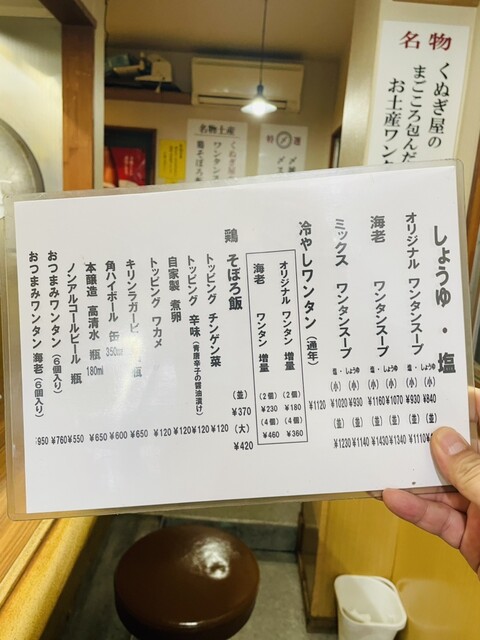 しょうゆ・塩
オリジナル ワンタンスープ
塩・しょうゆ
(小) (小)
¥930 ¥840
(並)
¥1110
海老 ワンタンスープ
塩・しょうゆ
(小) (小)
¥1160 ¥1070
(並) (並)
¥1430 ¥1340
ミックス ワンタンスープ
塩・しょうゆ
(小) (小)
¥1020 ¥930
(並) (並)
¥1230 ¥1140
冷やしワンタン(通年)
¥1120
オリジナル ワンタン 増量
(2個)
¥180
(4個)
¥360
海老 ワンタン 増量
(2個)
¥230
(4個)
¥460
鶏 そぼろ飯
(並)
¥370
(大)
¥420
トッピング チンゲン菜
¥120
トッピング 辛味(青唐辛子の醤油漬け)
¥120
自家製 煮卵
¥120
トッピング ワカメ
¥120
キリンラガービ 瓶
¥650
角ハイボール 缶 350ml
¥600
本醸造 高清水 瓶 180ml
¥650
ノンアルコールビール 瓶
¥550
おつまみワンタン(6個入り)
¥760
おつまみワンタン 海老(6個入り)
950
名物
くぬぎ屋の
まごころ包んだ
お土産ワンタ
名物土産
くぬぎ屋
ワンタンス
鶏そぼろ
特選